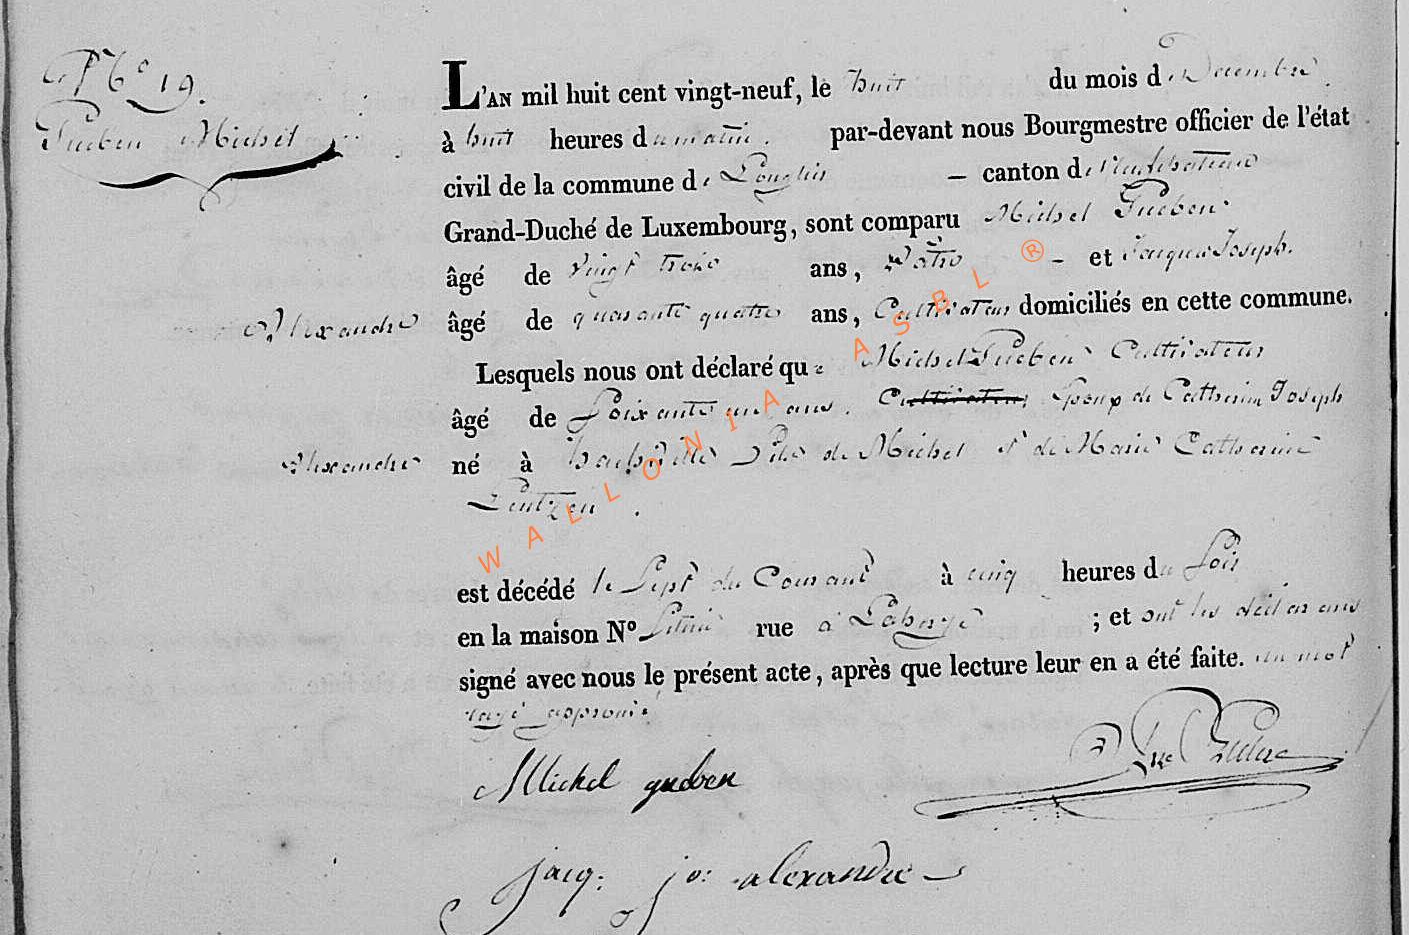 N.º 19.
Gueben Michel
L'AN mil huit cent vingt-neuf, le huit du mois de Decembre
à huit heures du matin. par-devant nous Bourgmestre officier de l'état
civil de la commune de Longlier — canton de Neufchateau
Grand-Duché de Luxembourg, sont comparu Michel Gueben
âgé de vingt trois ans, - et Jacques Joseph
Alexandre âgé de quarante quatre ans, Cultivateur domiciliés en cette commune.
Lesquels nous ont déclaré que Michel Gueben Cultivateur
âgé de soixante un ans. Cultivateur Epoux de Catherine Joseph
Alexandre né à fils de Michel et de Marie Catherine
Lentzen.
est décédé le Sept du Courant à cinq heures du soir
en la maison Nº rue à Lahage ; et ont les déclarans
signé avec nous le présent acte, après que lecture leur en a été faite. un mot
rayé approuvé
Michel gueben
jacq: jo: alexandre
WALLONIA ASBL ®